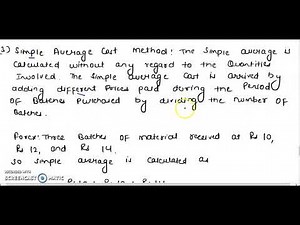 3) Simple Average Cost Method: The Simple average is
Calculated without any regard to the Quantities
Involved. The Simple average Cost is arrived by
adding different Prices paid during the Period
of Batches Purchased by dividing the number of
Batches.
Three Batches of material received at Rs 10,
Rs 12, and Rs 14.
So Simple average is calculated as
RECORDED WITH
SCREENCAST-O-MATIC